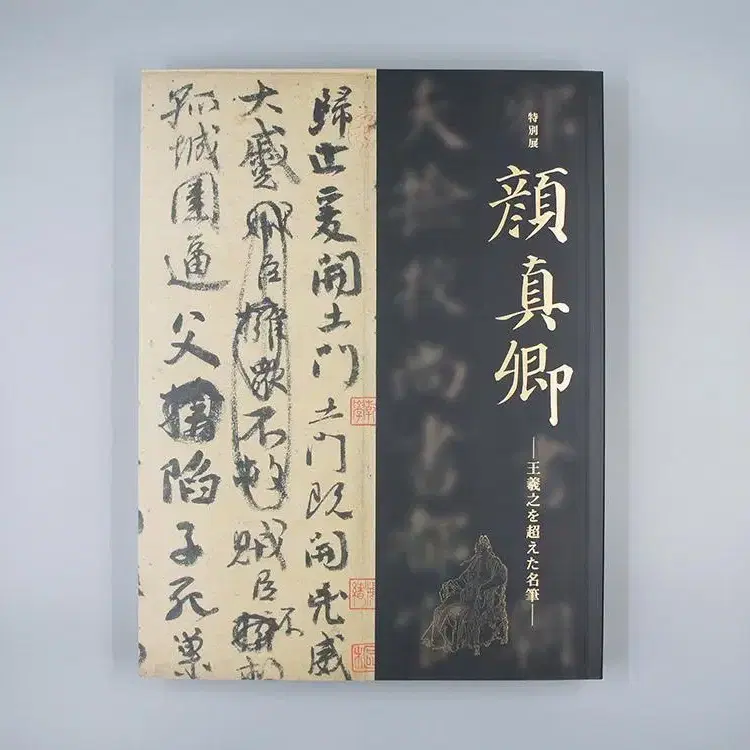 特別展
顔真卿
―王羲之を超えた名筆―
歸止爰開土門土門既開凶威
大蹙賊臣擁衆不救賊臣不
孤城圍逼父陷子死巢